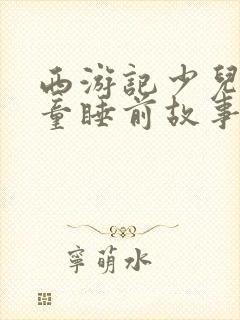 西游記少兒
童睡前故事
寧萌水